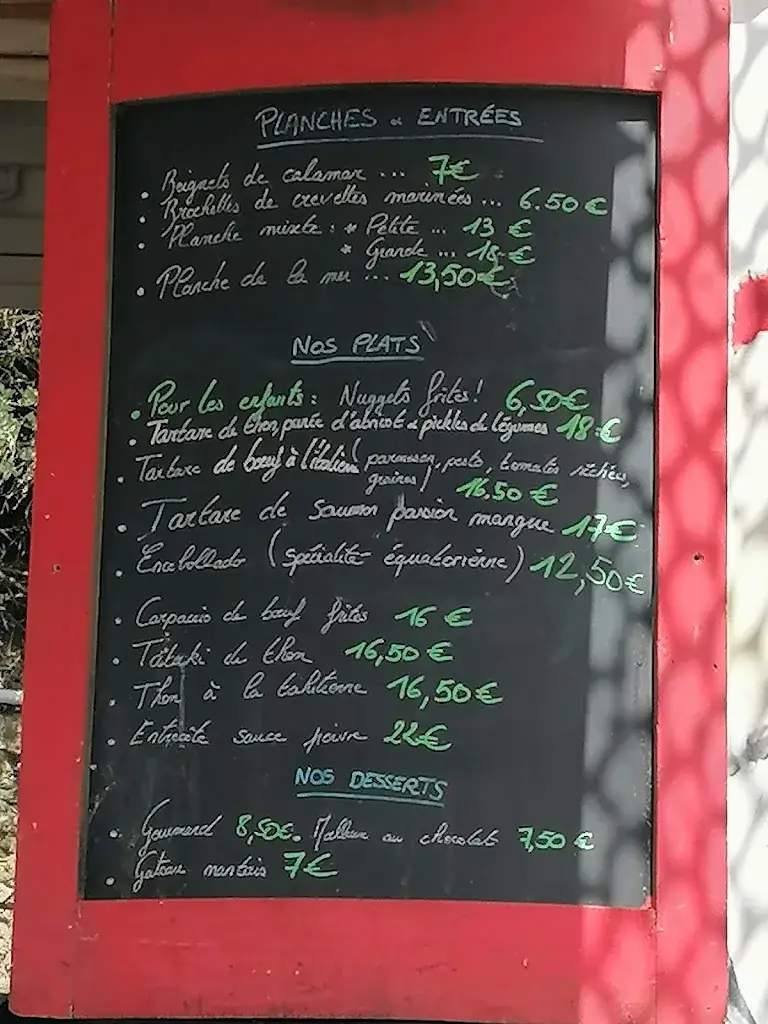 PLANCHES & ENTRÉES
• Beignets de calamar ... 7€
• Brochettes de crevettes marinées ... 6.50 €
• Planche mixte : * Petite ... 13 €
* Grande ... 18 €
• Planche de la mer ... 13,50€
NOS PLATS
• Pour les enfants : Nuggets frites ! 6,50€
• Tartare de thon, purée d'abricot & pickles de légumes 18 €
• Tartare de bœuf à l'italien ( parmesan, pesto, tomates séchées,
graines) 16.50 €
• Tartare de saumon passion mangue 17€
• Encebollado (spécialité équatorienne) 12,50€
• Carpaccio de bœuf frites 16 €
• Tataki de thon 16,50 €
• Thon à la tahitienne 16,50 €
• Entrecôte sauce poivre 22€
NOS DESSERTS
• Gourmand 8,50€. Moelleux au chocolat 7,50 €
• Gateau nantais 7€